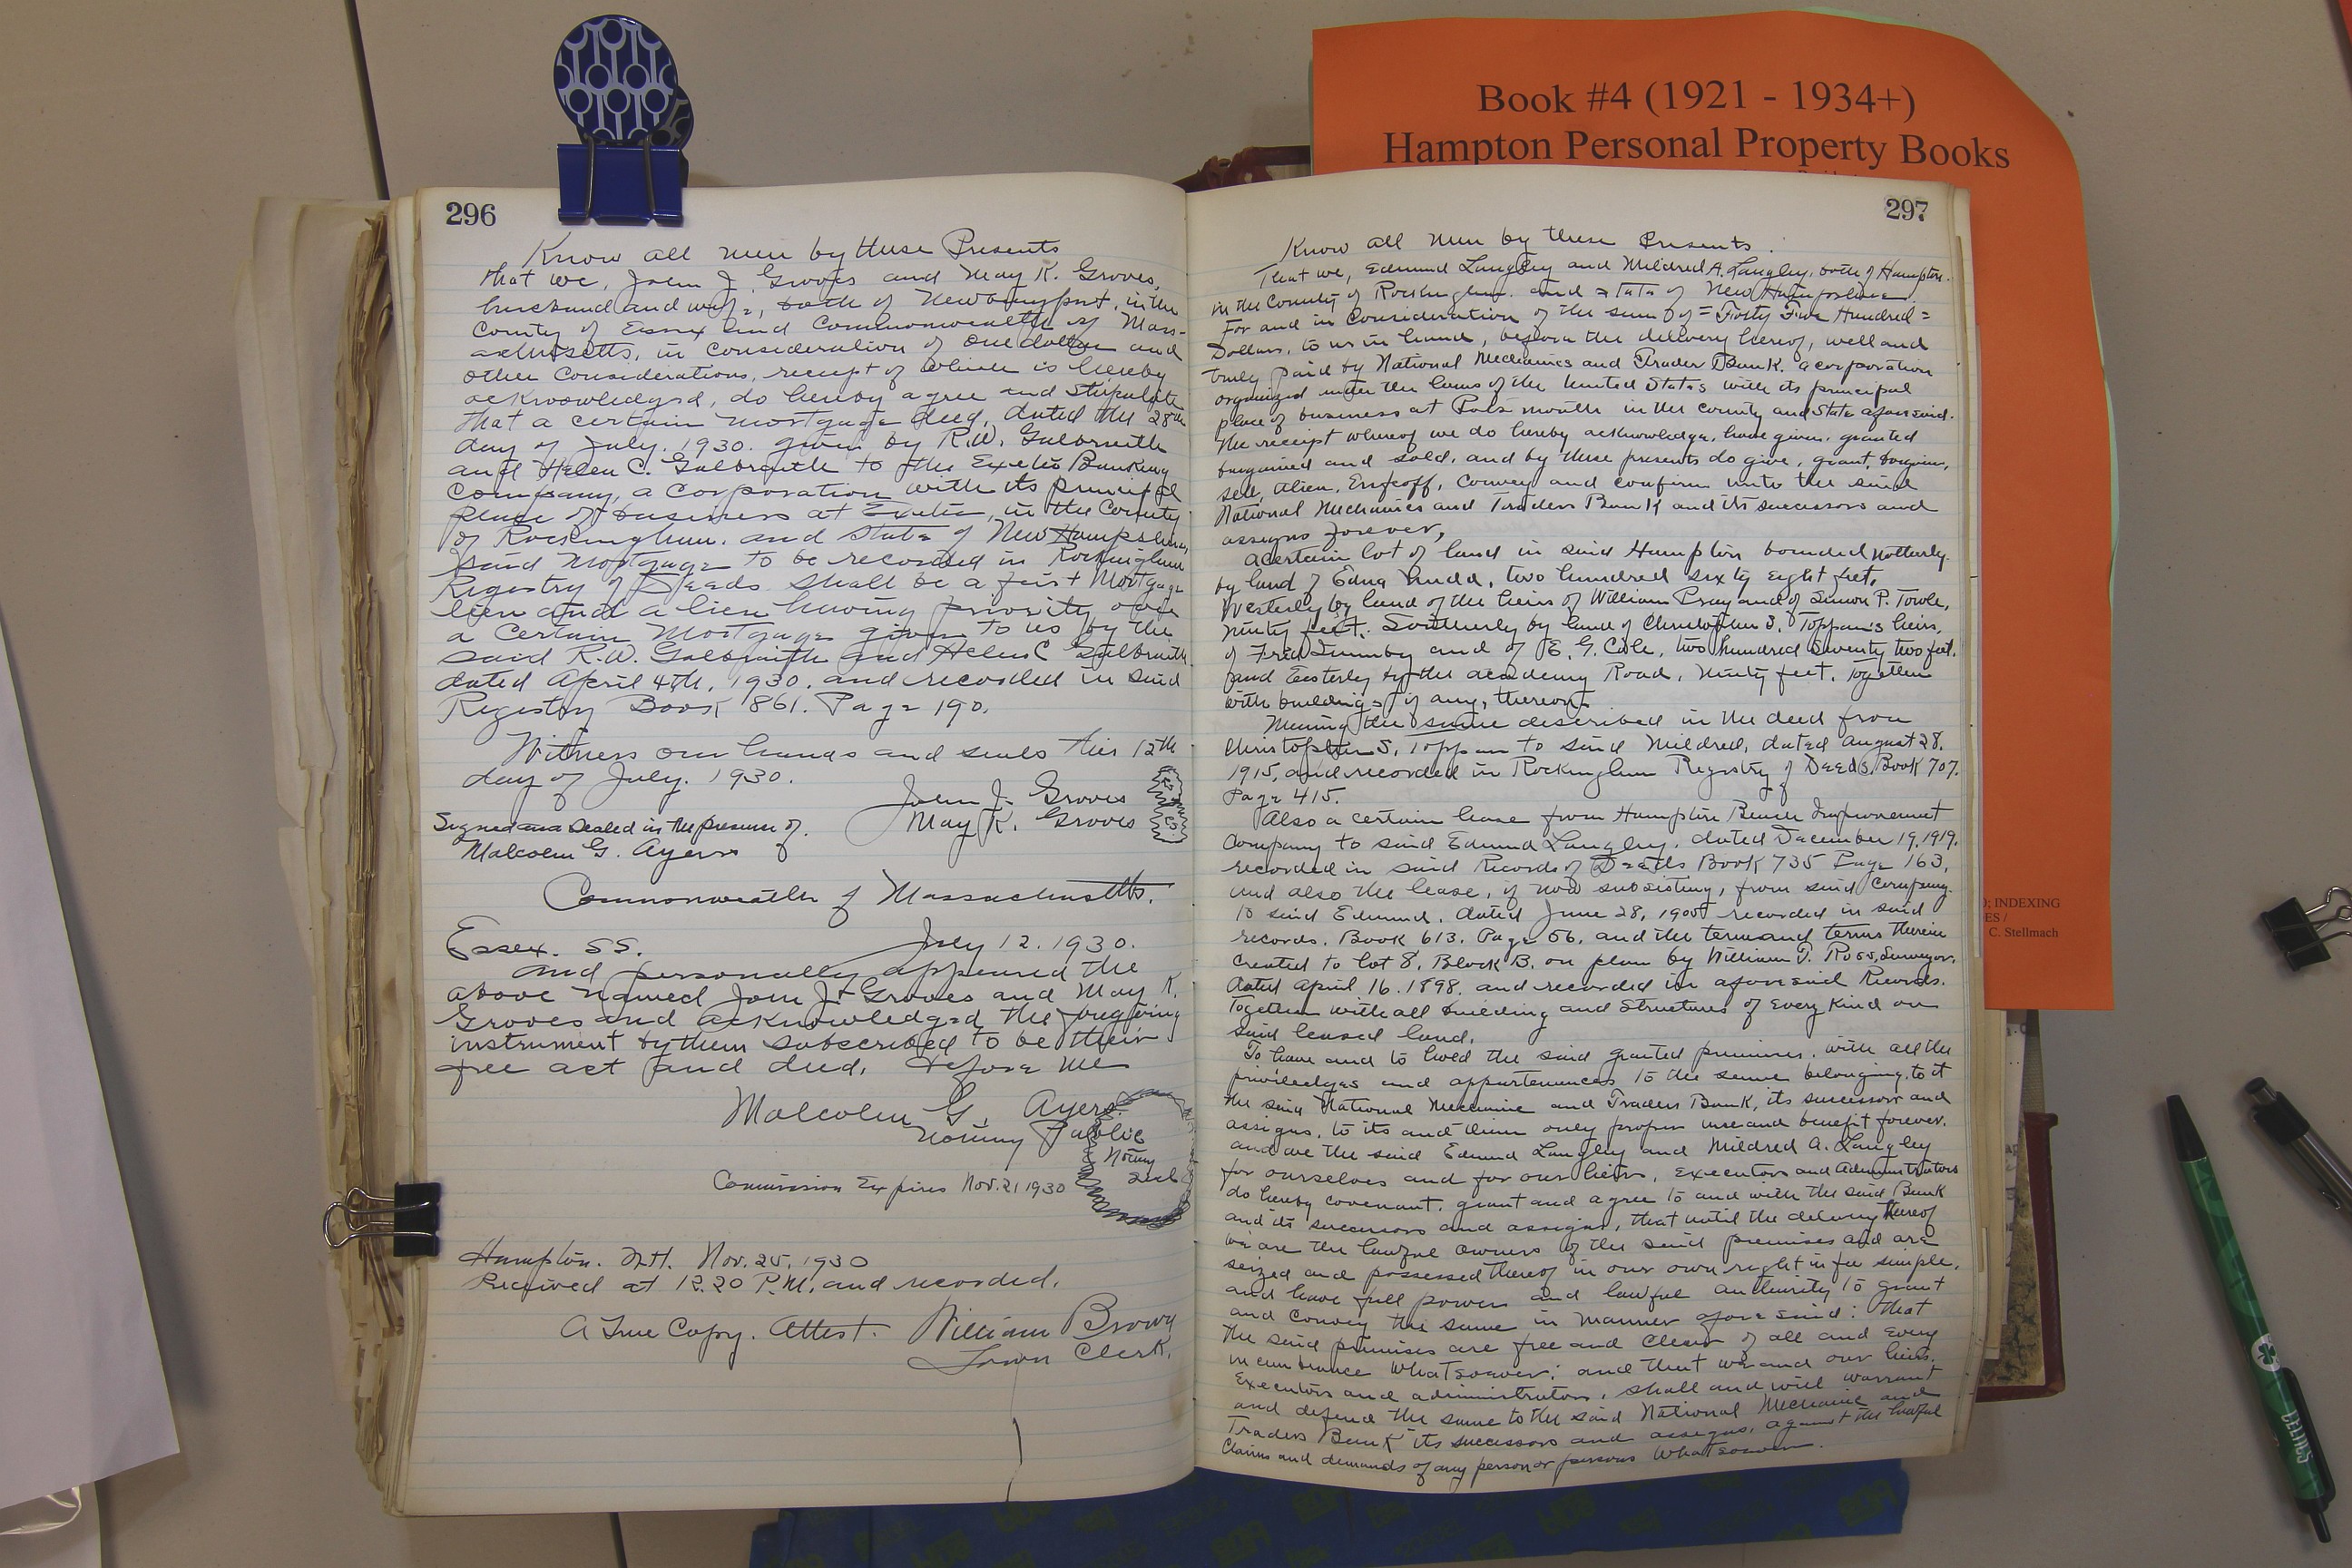 Book #4 (1921 - 1934+)
Hampton Personal Property Books
296
Know all men by these Presents
that we, John J. Groves and May K. Groves,
husband and wife, both of Newburyport, in the
County of Essex and Commonwealth of Mass-
achusetts, in consideration of one dollar and
other considerations, receipt of which is hereby
acknowledged, do hereby agree and stipulate
that a certain mortgage deed, dated the 28th
day of July, 1930. given by R.W. Galbraith
and Helen C. Galbraith to the Exeter Banking
Company, a corporation with its principal
place of business at Exeter, in the County
of Rockingham. and State of New Hampshire,
said Mortgage to be recorded in Rockingham
Registry of Deeds shall be a first Mortgage
lien and a lien having priority over
a certain Mortgage given to us by the
said R.W. Galbraith and Helen C Galbraith
dated April 4th, 1930. and recorded in said
Registry Book 861. Page 190.
Witness our hands and seals this 12th
day of July. 1930.
John J. Groves
May K. Groves
Signed and sealed in the presence of.
Malcolm G. Ayers
Commonwealth of Massachusetts.
Essex. SS. July 12. 1930.
and personally appeared the
above named John J. Groves and May K.
Groves and acknowledged the foregoing
instrument by them subscribed to be their
free act and deed, before me
Malcolm G. Ayers.
Notary Public
Notary
Seal
Commission Expires Nov. 21 1930
Hampton. N.H. Nov. 25, 1930
Received at 12.20 P.M. and recorded.
A True Copy. Attest. William Brown
Town Clerk.
297
Know all men by these Presents.
That we, Edmund Langley and Mildred A. Langley, both of Hampton.
in the County of Rockingham. and state of New Hampshire.
For and in Consideration of the sum of = Forty Five Hundred =
Dollars, to us in hand, before the delivery hereof, well and
truly paid by National Mechanics and Trader Bank. a corporation
organized under the laws of the United States with its principal
place of business at Portsmouth in the county and State aforesaid.
the receipt whereof we do hereby acknowledge, have given, granted
bargained and sold, and by these presents do give, grant, bargain,
sell, Alien, Enfeoff, Convey and confirm unto the said
National Mechanics and Traders Bank and its successors and
assigns forever,
A certain lot of land in said Hampton bounded Notherly
by land of Edna Budd, two hundred sixty eight feet,
Westerly by land of the heirs of William Pray and of Simon P. Towle,
ninety feet. Southerly by land of Christopher S. Toppan's heirs,
of Fred Quimby and of E. G. Cole, two hundred seventy two feet.
and Easterly by the academy Road, ninety feet. Together
with buildings, if any, thereon.
Meaning the same described in the deed from
Christopher S. Toppan to said Mildred, dated August 28.
1915, and recorded in Rockingham Registry of Deeds, Book 707.
Page 415.
Also a certain lease from Hampton Beach Improvement
Company to said Edmund Langley. dated December 19, 1919.
recorded in said Records of Deeds Book 735 Page 163,
and also the lease, if now subsisting, from said Company.
to said Edmund. dated June 28, 1905 recorded in said
records. Book 613. Page 56. and the term and terms therein
created to lot 8. Block B. on plan by William T. Ross, Surveyor.
dated April 16. 1898. and recorded in aforesaid Records.
Together with all building and Structures of every kind on
said leased land.
To have and to hold the said granted premises, with all the
priviledges and appurtenances to the same belonging, to it
the said National Mechanic and Traders Bank, its successor and
assigns, to its and their only proper use and benefit forever.
and we the said Edmund Langley and Mildred A. Langley
for ourselves and for our heirs, Executors and Administrators
do hereby covenant. grant and agree to and with the said Bank
and its successors and assigns, that until the delivery thereof
we are the lawful owners of the said premises and are
seized and possessed thereof in our own right in fee simple,
and have full power and lawful authority to grant
and Convey the same in manner aforesaid: that
the said premises are free and clear of all and every
incumbrance whatsoever: and that we and our heirs.
Executors and administrators, shall and will warrant
and defend the same to the said National Mechanic and
Traders Bank its successors and assigns, against the lawful
Claims and demands of any person or persons whatsoever.
INDEXING
C. Stellmach
CELTICS